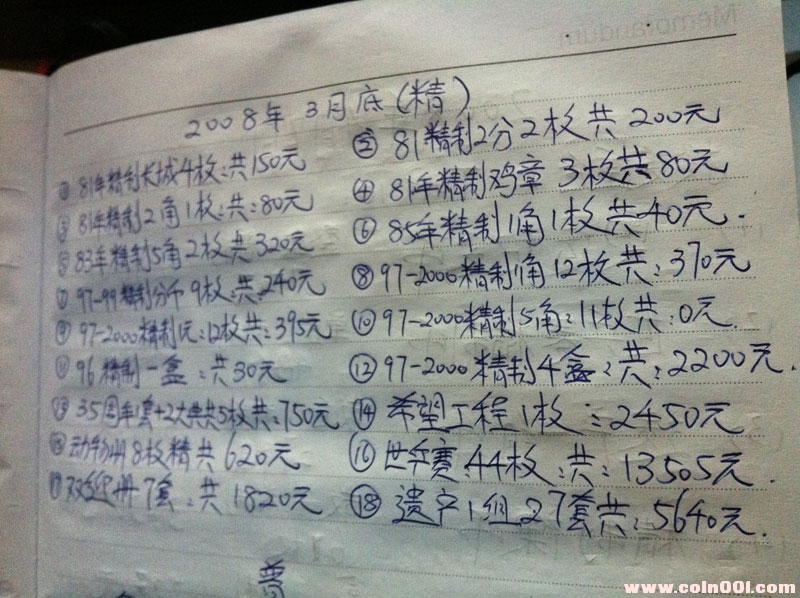 Memorandum
2008年 3月底(精)
① 81年精制长城4枚:共150元
② 81精制2分2枚共 200元
③ 81年精制2角1枚:共:80元
④ 81年精制鸡章 3枚共80元
⑤ 83年精制5角2枚共320元
⑥ 85年精制1角1枚共40元.
⑦ 97-99精制分币9枚:共:240元
⑧ 97-2000精制1角12枚共:370元
⑨ 97-2000精制1元:12枚共:395元
⑩ 97-2000精制5角:11枚共:0元.
⑪ 96精制一盒:共30元
⑫ 97-2000精制4盒:共:2200元.
⑬ 35周年1套+2大典共5枚共:750元
⑭ 希望工程1枚:2450元
动物册8枚精共620元
⑯ 世乒赛:44枚:共:13505元.
⑰ 册7套:共1820元
⑱ 遗产1组27套共:5640元.
普
www.coin001.com